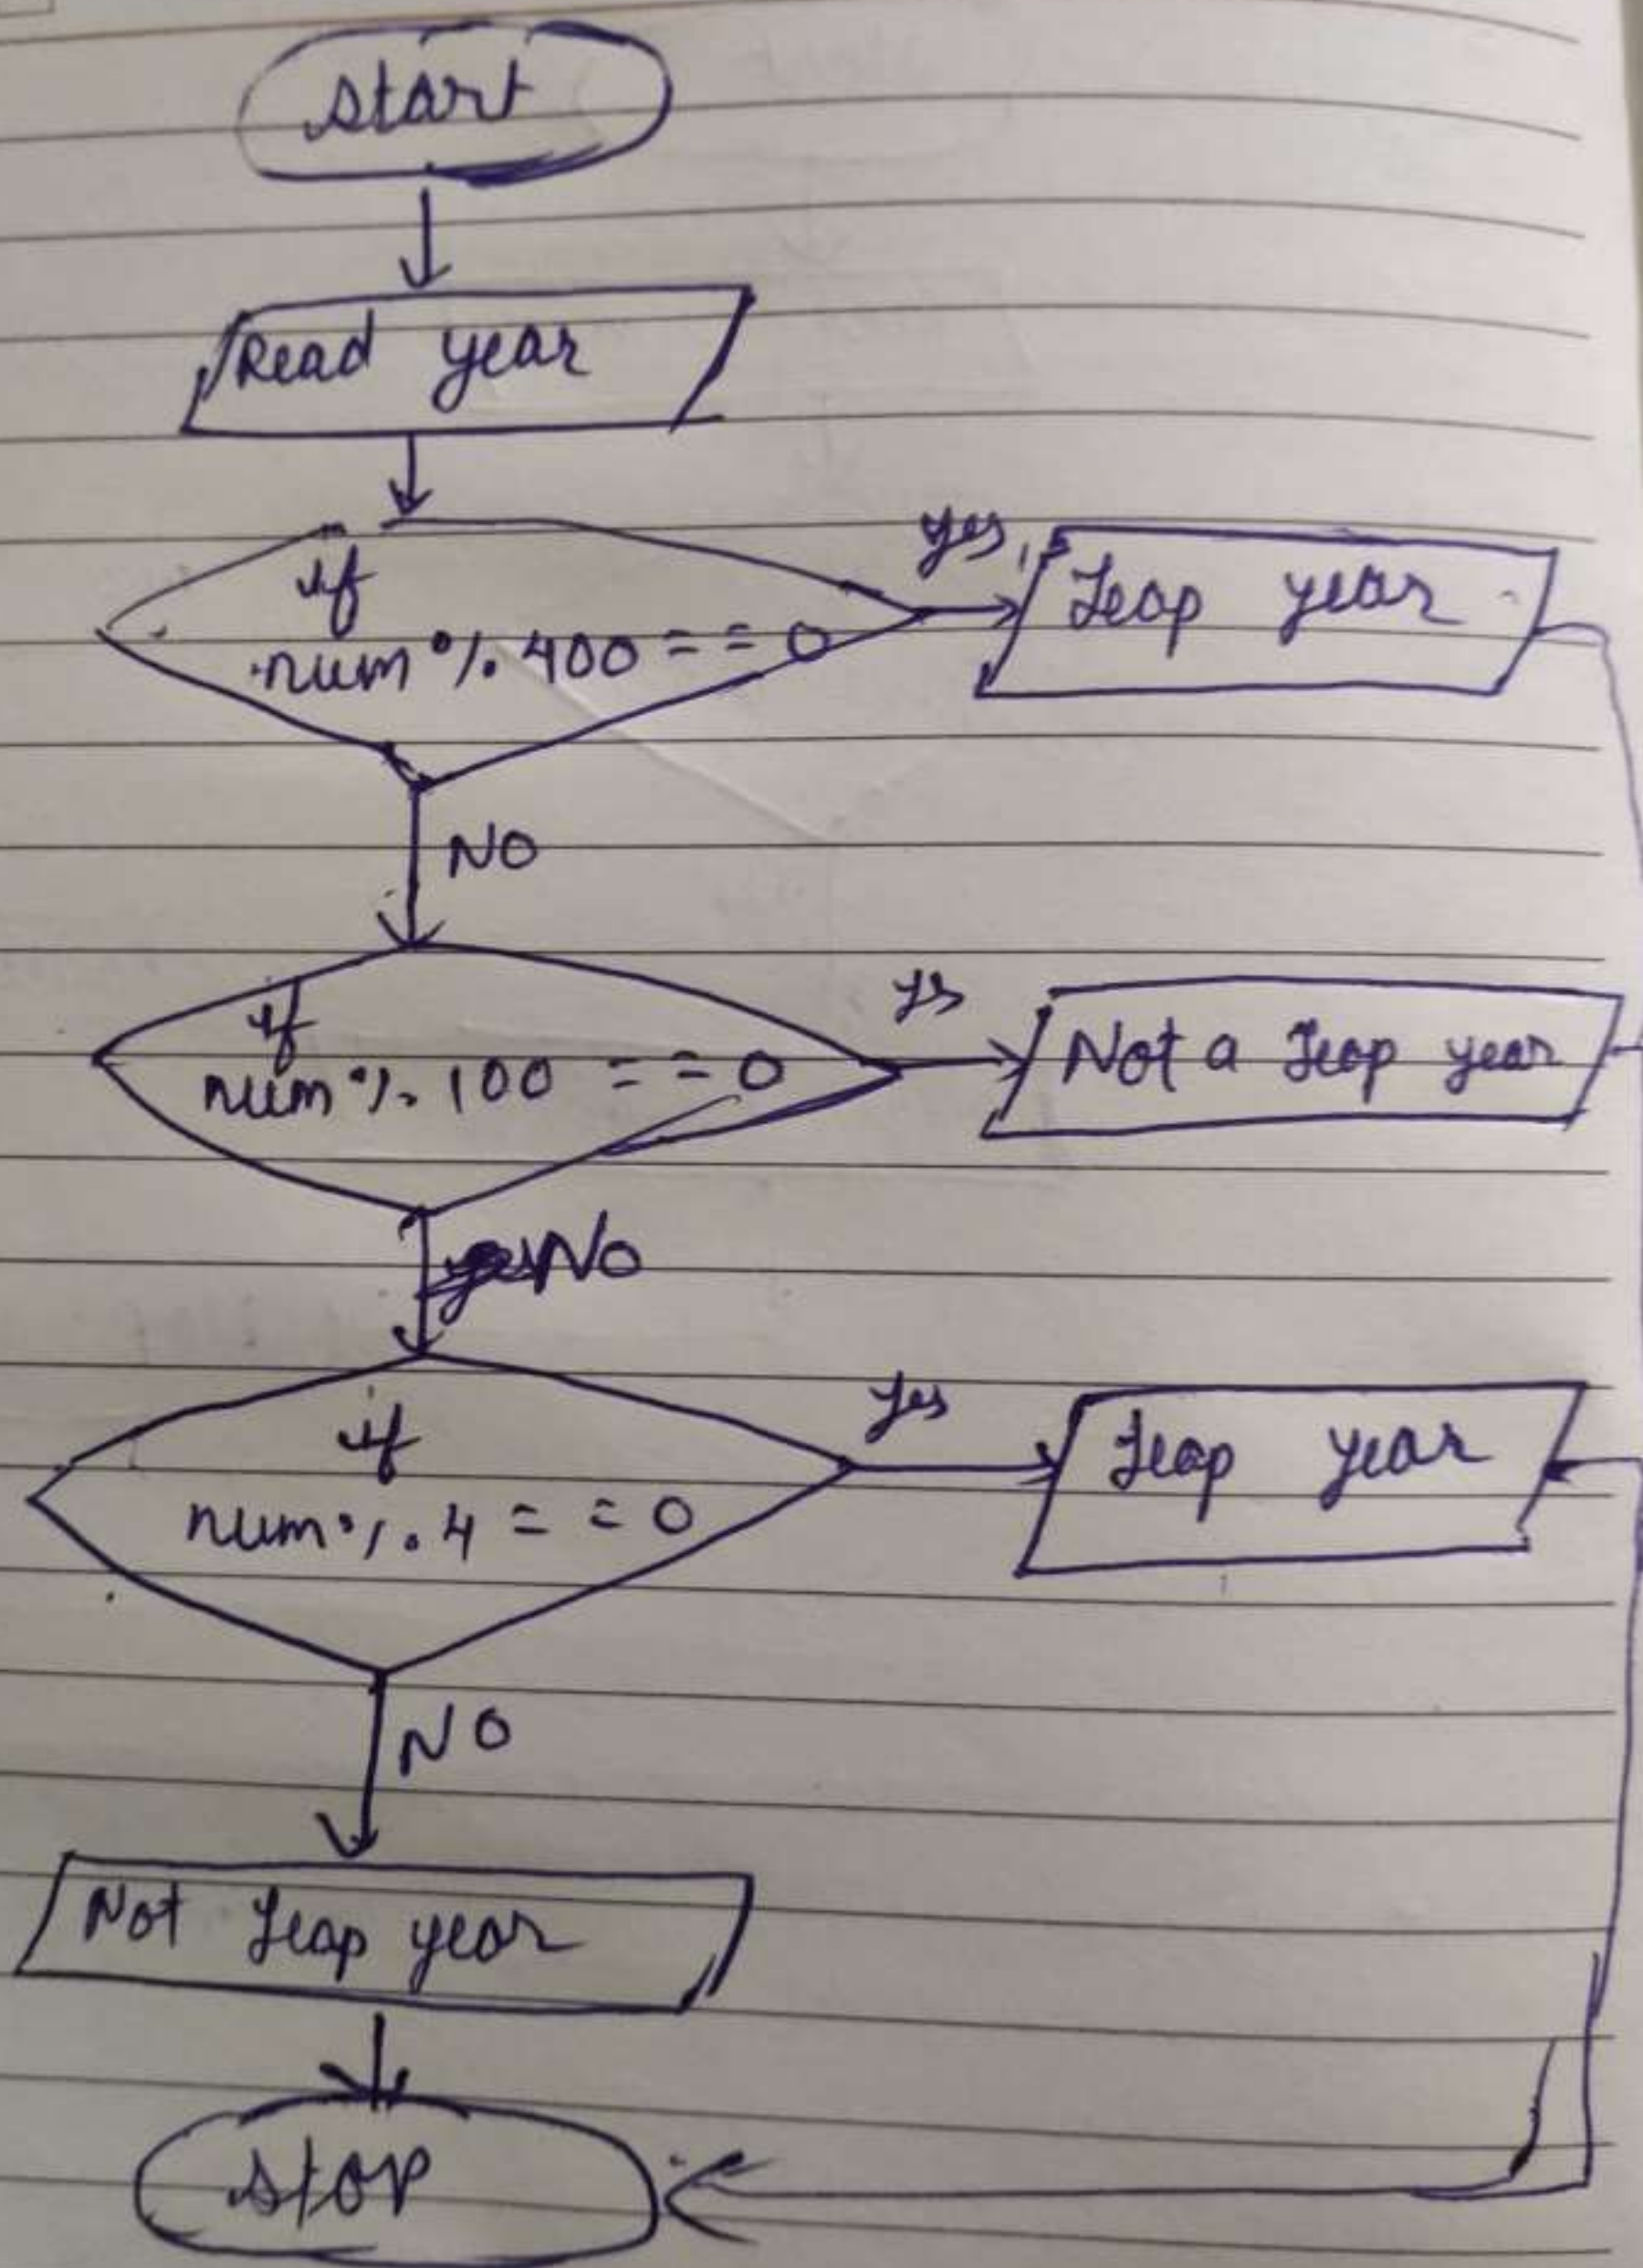 start
Read year
if
num % 400 = = 0
yes
Leap year
NO
if
num % 100 = = 0
yes
Not a Leap year
No
if
num % 4 = = 0
yes
Leap year
NO
Not Leap year
stop